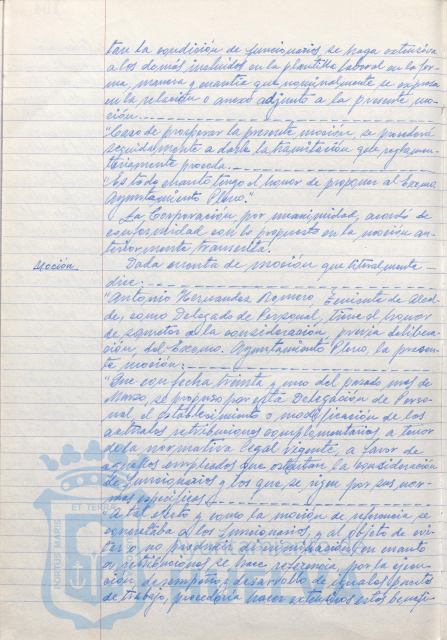 tan la condición de funcionarios, se haga extensiva
a los demás incluidos en la plantilla laboral en la for-
ma, manera y cuantía que nominalmente se expresa
en la relación o anexo adjunto a la presente mo-
ción.
"Caso de prosperar la presente moción, se pondrá
seguidamente a darle la tramitación que reglamen-
tariamente proceda.
"Es todo cuanto tengo el honor de proponer al Excmo.
Ayuntamiento Pleno."
La Corporación por unanimidad, acordó de
conformidad con lo propuesto en la moción an-
teriormente transcrita.
Moción
Dada cuenta de moción que literalmente
dice:
"Antonio Hernandez Romero, Teniente de Alcal-
de, como Delegado de Personal, tiene el honor
de someter a la consideración, previa delibera-
ción, del Excmo. Ayuntamiento Pleno, la presen-
te moción:
"Que con fecha treinta y uno del pasado mes de
Marzo, se propuso por esta Delegación de Perso-
nal, el establecimiento o modificación de las
actuales retribuciones complementarias a tenor
de la normativa legal vigente, a favor de
aquellos empleados que ostentan la consideración
de funcionarios y los que se rigen por sus nor-
mas específicas.
"A tal efecto y como la moción de referencia, se
a los funcionarios, y al objeto de evi-
tar o no producir discriminación en cuanto
a retribuciones se hace referencia, por la ejecu-
ción desempeño y desarrollo de iguales puestos
de trabajo, procedería hacer extensivos estos benefi-
PORTUS MARIS ET TERRA